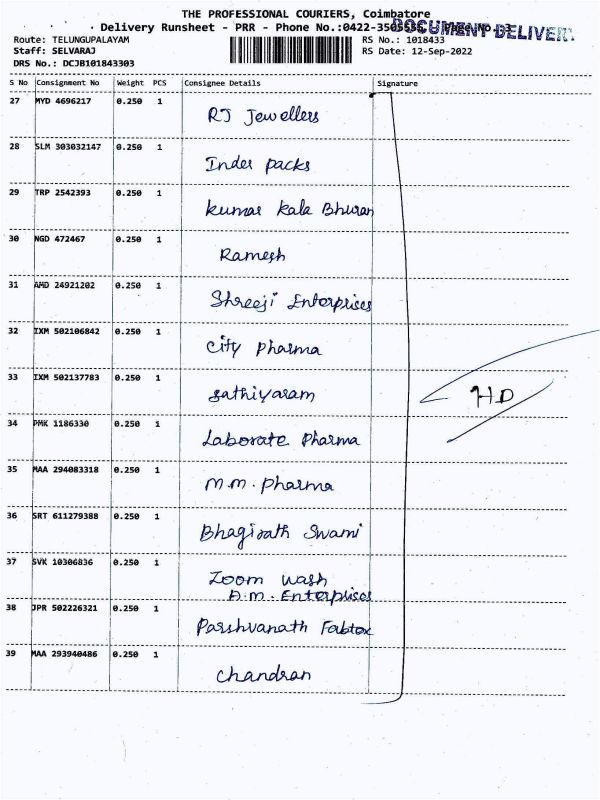 THE PROFESSIONAL COURIERS, Coimbatore
Delivery Runsheet - PRR - Phone No.:0422-3505555, Page No. 3
DOCUMENT DELIVERY
Route: TELUNGUPALAYAM RS No.: 1018433
Staff: SELVARAJ RS Date: 12-Sep-2022
DRS No.: DCJB101843303
S No Consignment No Weight PCS Consignee Details Signature
27 MYD 4696217 0.250 1 RJ Jewellers
28 SLM 303032147 0.250 1 Inder packs
29 TRP 2542393 0.250 1 kumar kala Bhuvan
30 NGD 472467 0.250 1 Ramesh
31 AMD 24921202 0.250 1 Shreeji Enterprises
32 IXM 502106842 0.250 1 City pharma
33 IXM 502137783 0.250 1 sathiyaram
HD
34 PMK 1186330 0.250 1 Laborate Pharma
35 MAA 294083318 0.250 1 M.M. pharma
36 SRT 611279388 0.250 1 Bhagirath Swami
37 SVK 10306836 0.250 1 Zoom wash
A.M. Enterprises
38 JPR 502226321 0.250 1 Parshvanath Fabtex
39 MAA 293940486 0.250 1 chandran